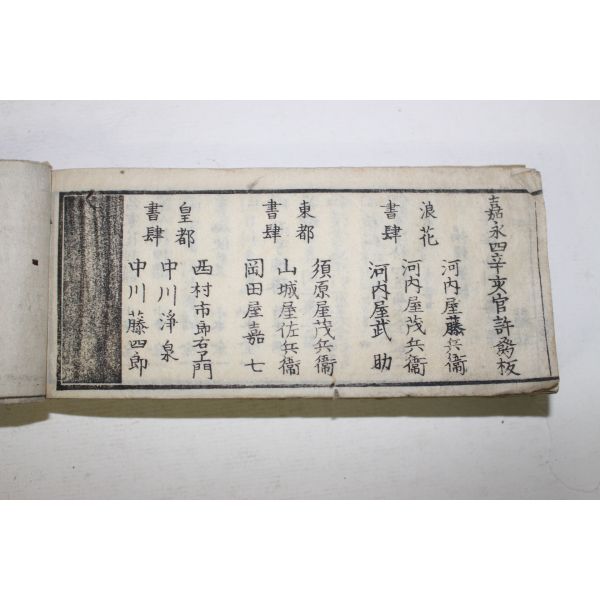 嘉永四辛亥官許發板
浪花
書肆
河内屋藤兵衞
河内屋茂兵衞
河内屋武助
東都
書肆
須原屋茂兵衞
山城屋佐兵衞
岡田屋嘉七
皇都
書肆
西村市郎右ヱ門
中川淨泉
中川藤四郎